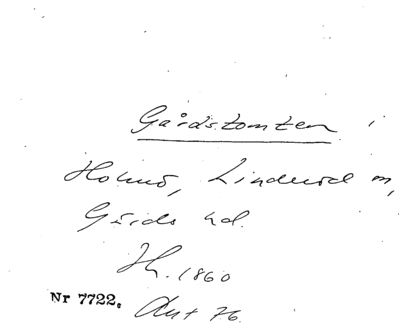 Gårdstomten i
Holmö, Linderöd sn,
Gärds hd.
H. 1860
Nr 7722. Ant 76